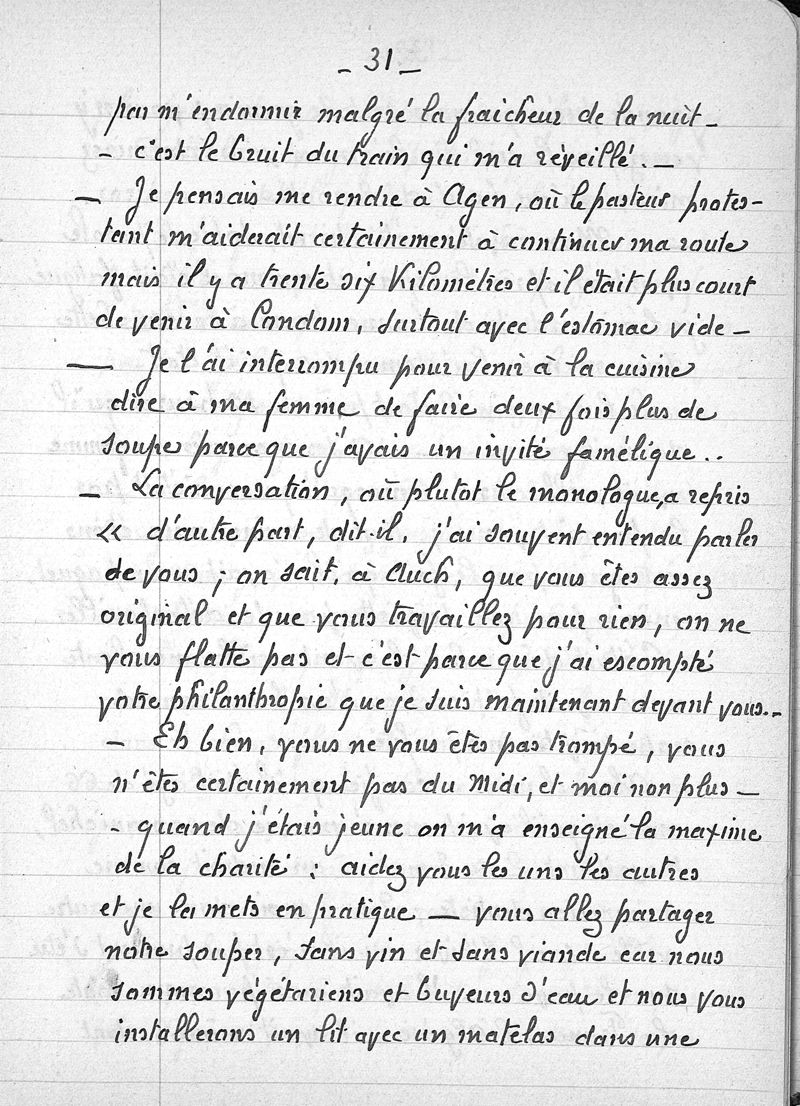 _ 31 _
par m'endormir malgré la fraicheur de la nuit _
_ c'est le bruit du train qui m'a réveillé. _
_ Je pensais me rendre à Agen, où le pasteur protes-
tant m'aiderait certainement à continuer ma route
mais il y a trente six Kilomètres et il était plus court
de venir à Condom, surtout avec l'estomac vide _
__ Je l'ai interrompu pour venir à la cuisine
dire à ma femme de faire deux fois plus de
soupe parce que j'avais un invité famélique..
_ La conversation, où plutot le monologue, a repris
« d'autre part, dit-il, j'ai souvent entendu parler
de vous ; on sait, à Auch, que vous êtes assez
original et que vous travaillez pour rien, on ne
vous flatte pas et c'est parce que j'ai escompté
votre philanthropie que je suis maintenant devant vous. _
_ Eh bien, vous ne vous êtes pas trompé, vous
n'êtes certainement pas du Midi, et moi non plus _
_ quand j'étais jeune on m'a enseigné la maxime
de la charité : aidez vous les uns les autres
et je la mets en pratique __ vous allez partager
notre souper, sans vin et sans viande car nous
sommes végétariens et buveurs d'eau et nous vous
installerons un lit avec un matelas dans une